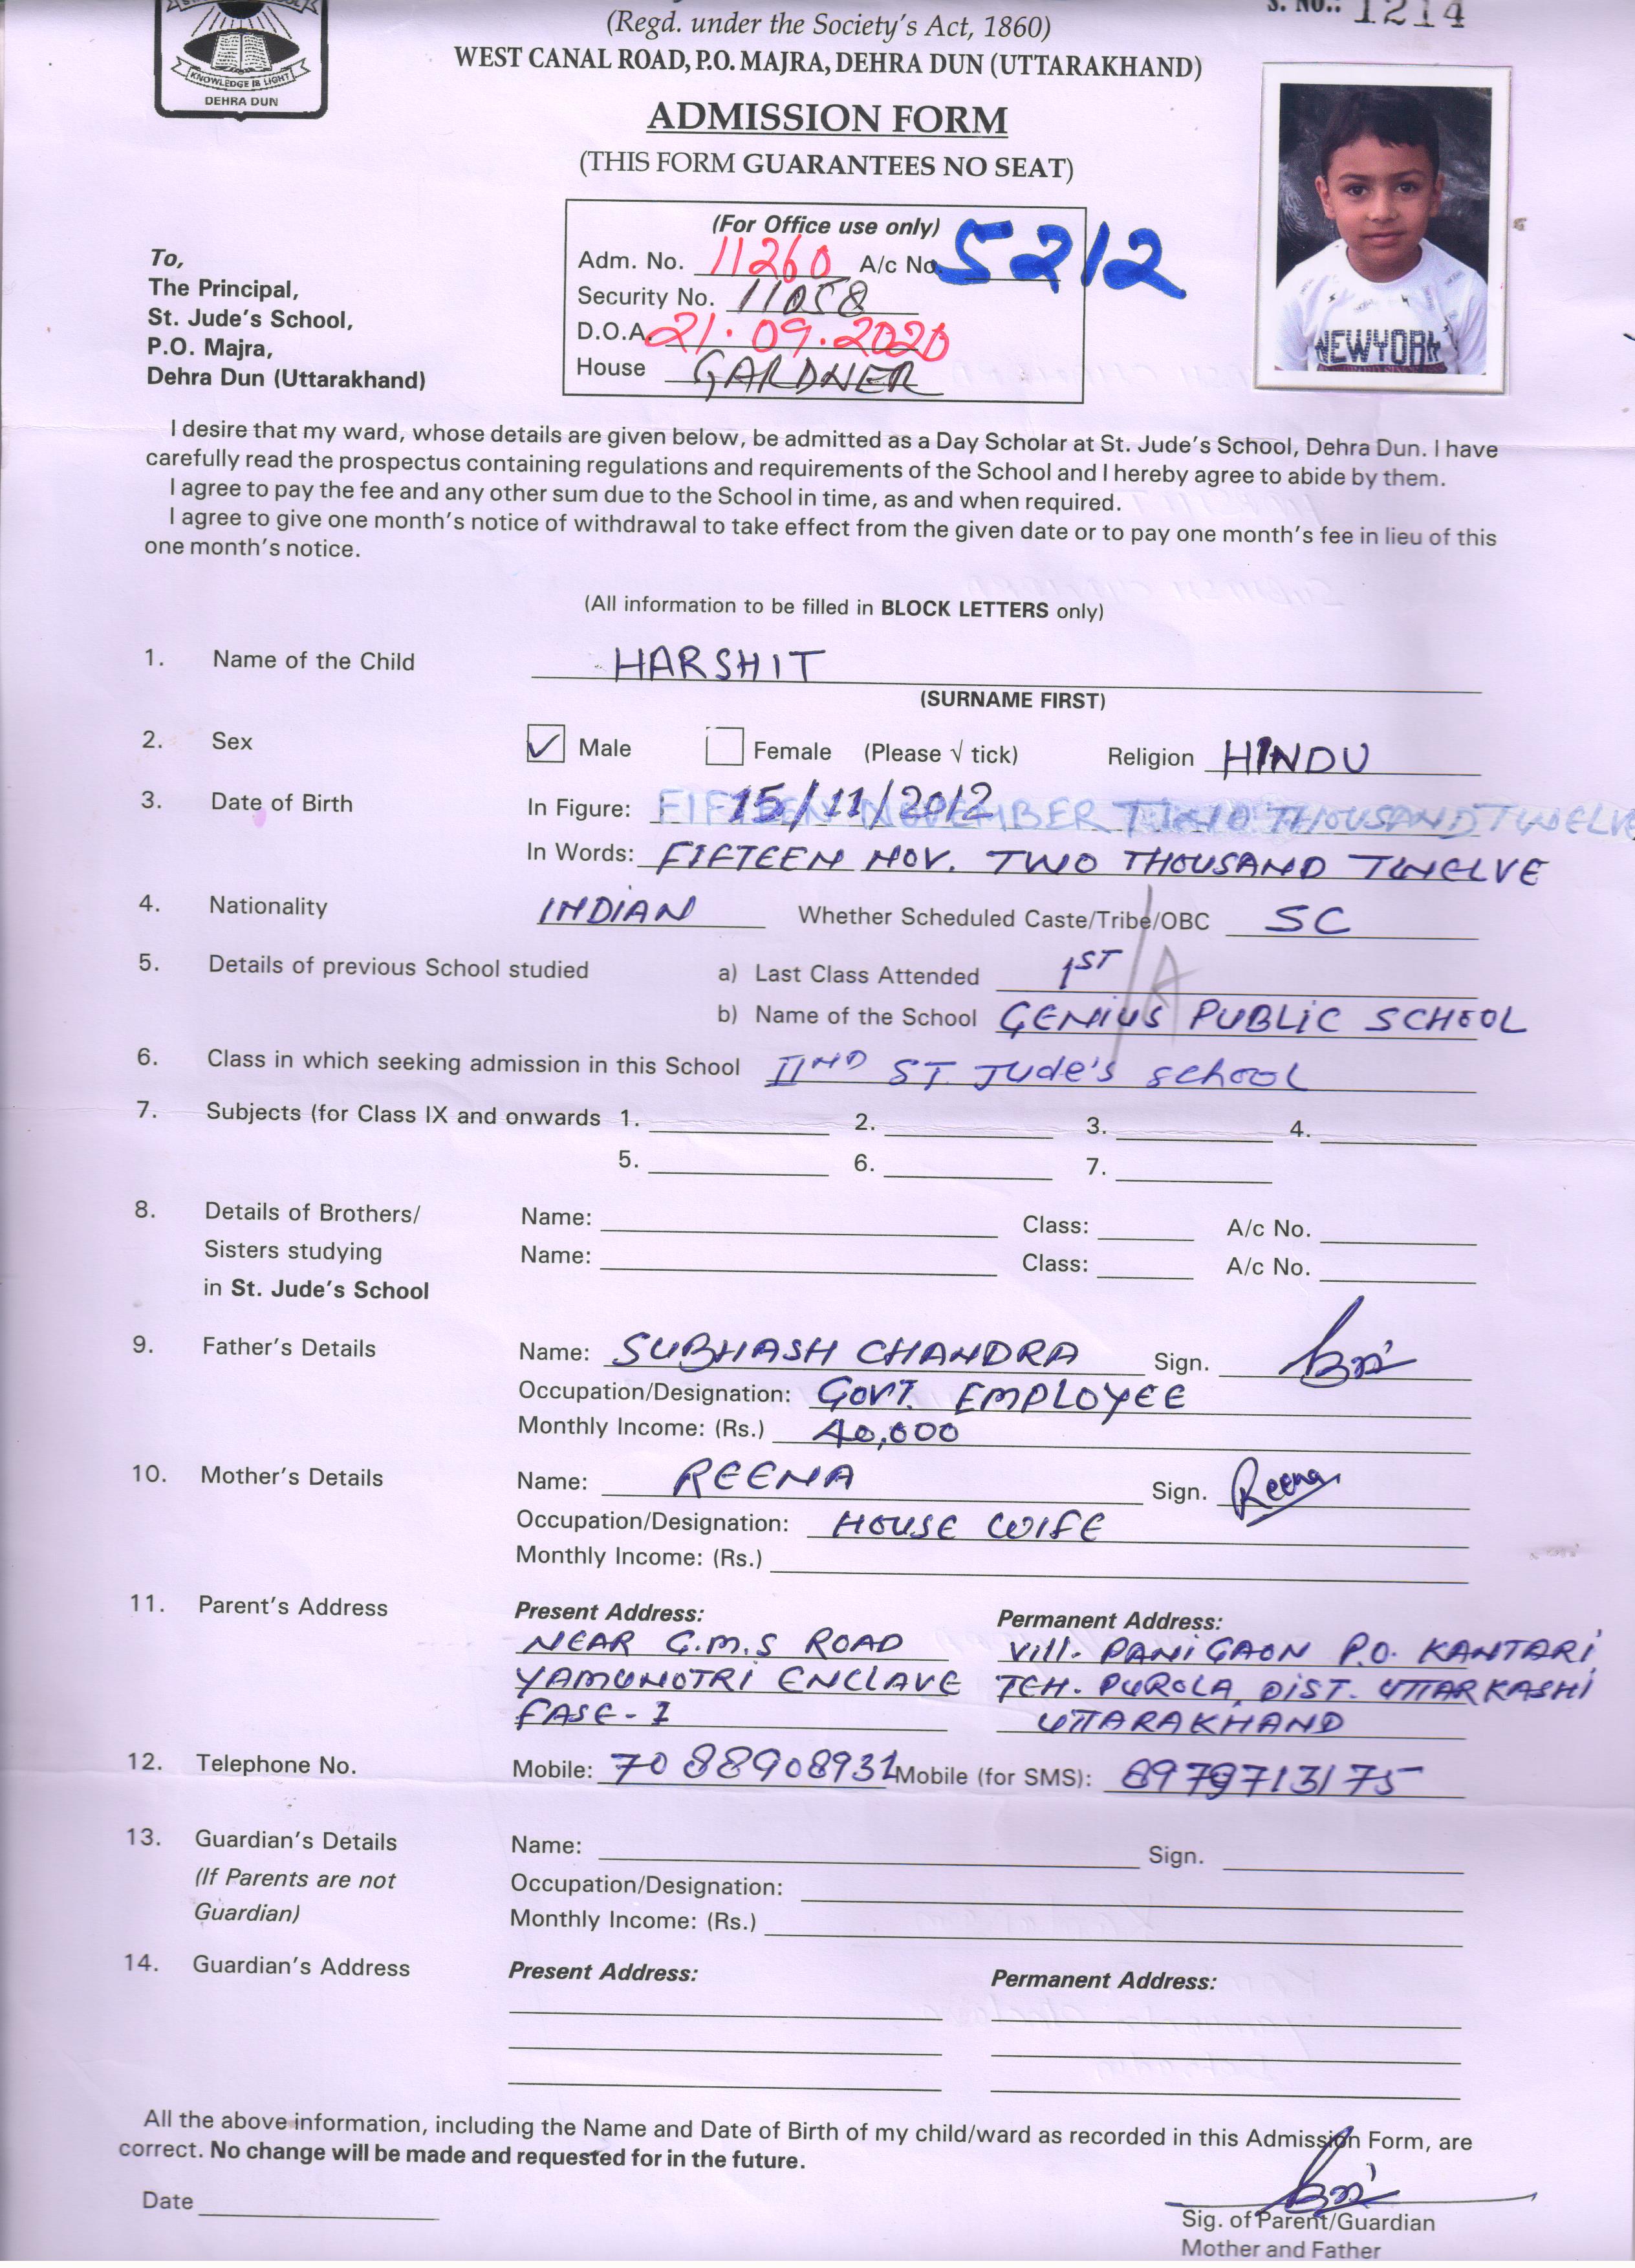 S. No.: 1214
(Regd. under the Society's Act, 1860)
WEST CANAL ROAD, P.O. MAJRA, DEHRA DUN (UTTARAKHAND)
KNOWLEDGE IS LIGHT
DEHRA DUN
ADMISSION FORM
(THIS FORM GUARANTEES NO SEAT)
(For Office use only)
Adm. No. 11260 A/c No. 5212
Security No. 11058
D.O.A. 21.09.2020
House GARDNER
NEWYORK
To,
The Principal,
St. Jude's School,
P.O. Majra,
Dehra Dun (Uttarakhand)
I desire that my ward, whose details are given below, be admitted as a Day Scholar at St. Jude's School, Dehra Dun. I have
carefully read the prospectus containing regulations and requirements of the School and I hereby agree to abide by them.
I agree to pay the fee and any other sum due to the School in time, as and when required.
I agree to give one month's notice of withdrawal to take effect from the given date or to pay one month's fee in lieu of this
one month's notice.
(All information to be filled in BLOCK LETTERS only)
1. Name of the Child HARSHIT
(SURNAME FIRST)
2. Sex ✓ Male Female (Please √ tick) Religion HINDU
3. Date of Birth In Figure: 15/11/2012 FIFTEEN NOVEMBER TWO THOUSAND TWELVE
In Words: FIFTEEN NOV. TWO THOUSAND TWELVE
4. Nationality INDIAN Whether Scheduled Caste/Tribe/OBC SC
5. Details of previous School studied a) Last Class Attended 1ST
b) Name of the School GENIUS PUBLIC SCHOOL
6. Class in which seeking admission in this School IIND ST. JUde's school
7. Subjects (for Class IX and onwards 1. 2. 3. 4.
5. 6. 7.
8. Details of Brothers/ Name: Class: A/c No.
Sisters studying Name: Class: A/c No.
in St. Jude's School
9. Father's Details Name: SUBHASH CHANDRA Sign.
Occupation/Designation: GOVT. EMPLOYEE
Monthly Income: (Rs.) 40,000
10. Mother's Details Name: REENA Sign. Reena
Occupation/Designation: HOUSE WIFE
Monthly Income: (Rs.)
11. Parent's Address Present Address: Permanent Address:
NEAR G.M.S ROAD Vill. PANIGAON P.O. KANTARI
YAMUNOTRI ENCLAVE TEH. PUROLA, DIST. UTTARKASHI
FASE-I UTTARAKHAND
12. Telephone No. Mobile: 7088908931 Mobile (for SMS): 8979713175
13. Guardian's Details Name: Sign.
(If Parents are not Occupation/Designation:
Guardian) Monthly Income: (Rs.)
14. Guardian's Address Present Address: Permanent Address:
All the above information, including the Name and Date of Birth of my child/ward as recorded in this Admission Form, are
correct. No change will be made and requested for in the future.
Date
Sig. of Parent/Guardian
Mother and Father